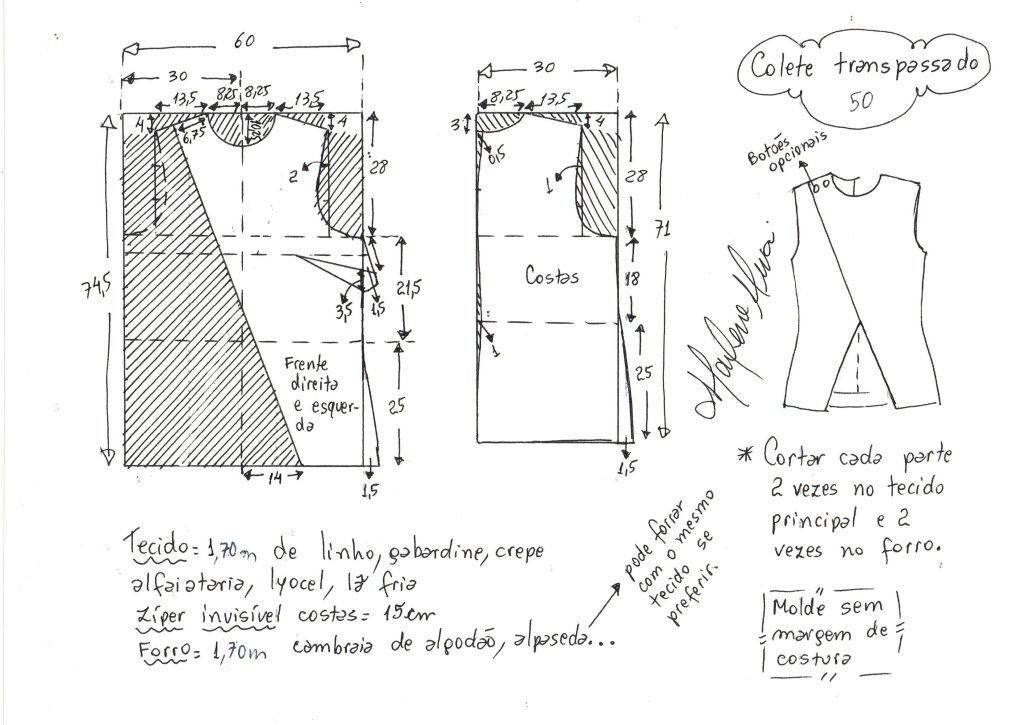 60
30
13,5
8,25
8,25
13,5
4
6,75
4
2
28
74,5
3,5
1,5
21,5
Frente
direita
e esquer-
da
25
14
1,5
30
8,25
13,5
3
0,5
4
1
28
71
Costas
18
1
25
1,5
Colete transpassado
50
Botões
opcionais
* Cortar cada parte
2 vezes no tecido
principal e 2
vezes no forro.
Molde sem
margem de
costura
Tecido = 1,70m de linho, gabardine, crepe
alfaiataria, lyocel, lã fria
Zíper invisível costas = 15cm
Forro = 1,70m cambraia de algodão, alpaseda...
pode forrar
com o mesmo
tecido se
preferir.